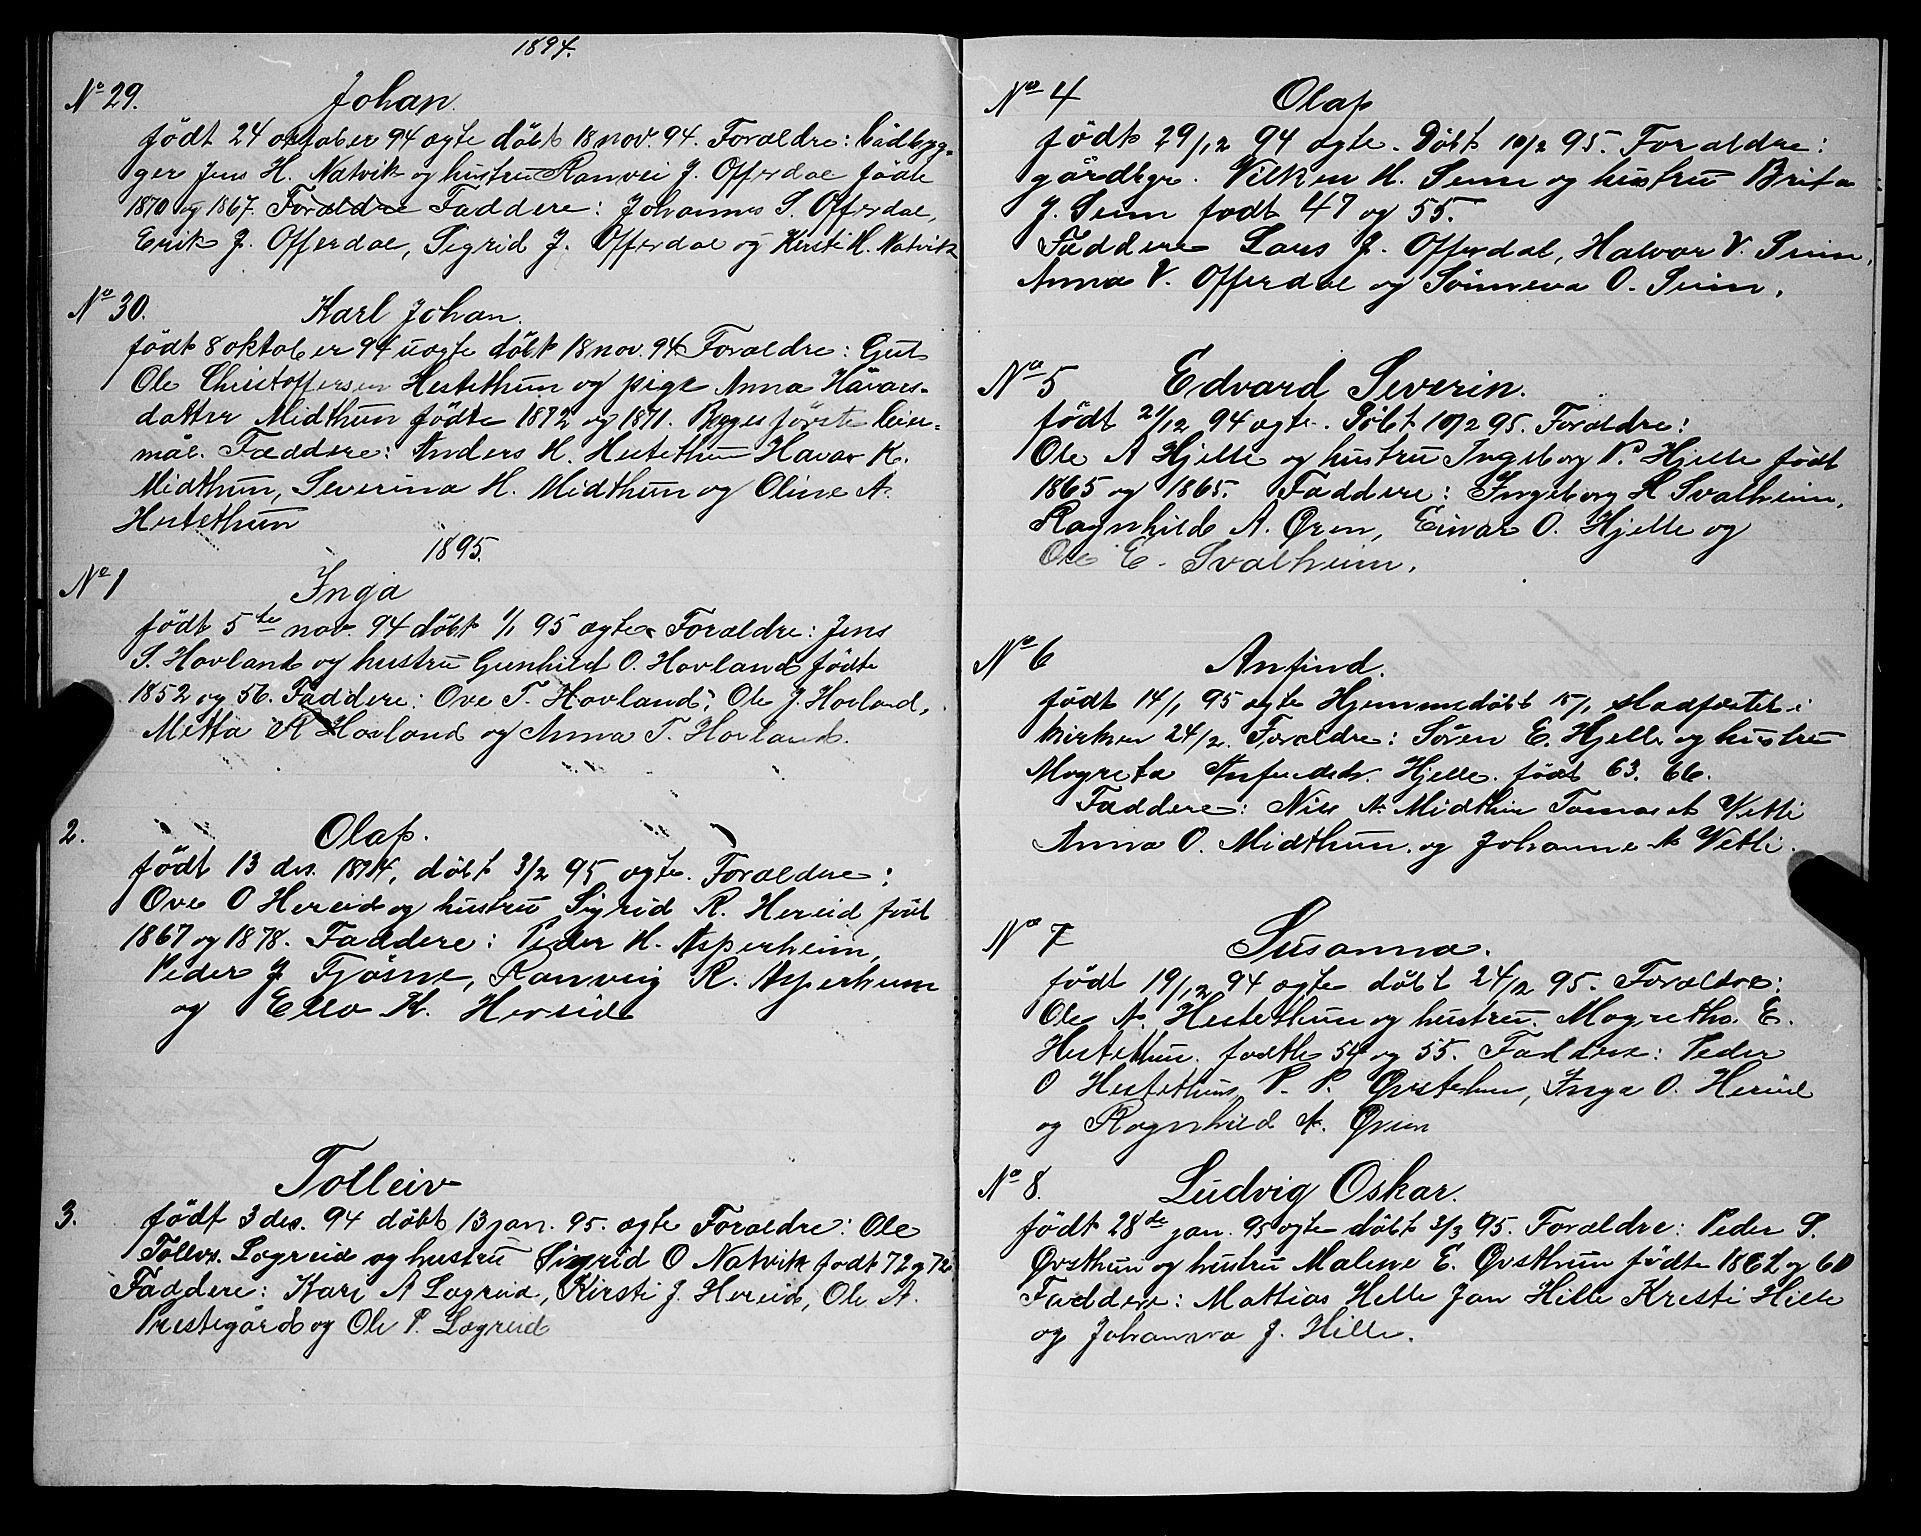 1894.
No 29. Johan
født 24 oktober 94 ægte døbt 18 nov. 94. Forældre: bådbyg-
ger Jens H. Natvik og hustru Ranvei J. Offerdal fødte
1870 og 1867. Forældre Faddere: Johannes S. Offerdal,
Erik J. Offerdal, Sigrid J. Offerdal og Kirsti H. Natvik
No 30. Karl Johan.
født 8 oktober 94 uægte døbt 18 nov. 94 Forældre: Gut
Ole Christoffersen Hestethun og pige Anna Håvars-
datter Midthun fødte 1872 og 1871. Begges første leier-
mål. Faddere: Anders H. Hestethun Havar K.
Midthun, Severina H. Midthun og Oline A.
Hestethun
1895.
No 1 Inga
født 5te nov. 94 døbt 1/1 95 ægte Forældre: Jens
S. Hovland og hustru Gunhild O. Hovland fødte
1852 og 56. Faddere: Ove T. Hovland, Ole J. Hovland,
Metta R Hovland og Anna T. Hovland.
2. Olaf.
født 13 des. 1894, døbt 3/2 95 ægte. Forældre:
Ove O Hereid og hustru Sigrid R. Hereid født
1867 og 1878. Faddere: Peder H. Asperheim,
Peder J Fjøsne, Ranveig R. Asperheim
og Ella K. Hereid
Tolleiv
3. født 3 des. 94 døbt 13 jan. 95. ægte Forældre: Ole
Tollvs. Lægreid og hustru Sigrid O Natvik født 72 og 72
Faddere: Kari A Lægreid, Kirsti J. Hereid, Ole A.
Prestegård og Ole P. Lægreid
No 4 Olaf
født 29/12 94 ægte. Døbt 10/2 95. Forældre:
gårdbgr. Vilken H. Seim og hustru Brita
J. Seim født 47 og 55.
Faddere Lars J. Offerdal, Halvor V. Seim,
Anna V. Offerdal og Sønneva O. Seim.
No 5 Edvard Severin.
født 21/12 94 ægte. Døbt 10/2 95. Forældre:
Ole A Hjelle og hustru Ingeborg P. Hjelle født
1865 og 1865. Faddere: Ingeborg H Svalheim,
Ragnhild A. Øren, Einar O. Hjelle og
Ole E. Svalheim.
No 6 Anfind.
født 14/1 95 ægte Hjemmedøbt 15/1 stadfæstet i
kirken 24/2. Forældre: Søren E. Hjelle og hustru
Magreta Anfindsdr. Hjelle. født 63. 66.
Faddere: Nils A. Midthun Tomas A Vetti
Anna O. Midthun. og Johanne A Vetti.
No 7 Susanna.
født 19/12 94 ægte døbt 24/2 95. Forældre:
Ole A. Hestethun og hustru. Magretha E.
Hestethun. fødte 54 og 55. Faddere: Peder
O Hestethun P. P. Øvstethun, Inga O. Hereid
og Ragnhild A. Øren
No 8. Ludvig Oskar.
født 28de jan. 95 ægte døbt 3/3 95. Forældre: Peder S.
Øvsthun og hustru Malene E. Øvsthun fødte 1862 og 60
Faddere: Mattias Hille Jan Hille Kristi Hille
og Johanna J. Hille.